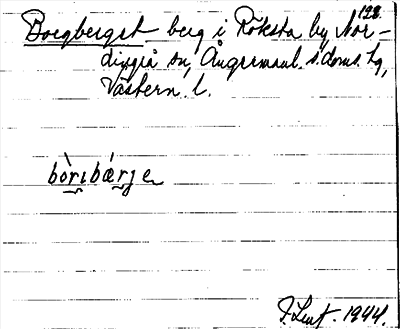 128
Borgberget berg i Röksta by Nor-
dingrå sn, Ångermanl. s. doms. tg,
Västern. l.
bòrıbærje
1944.